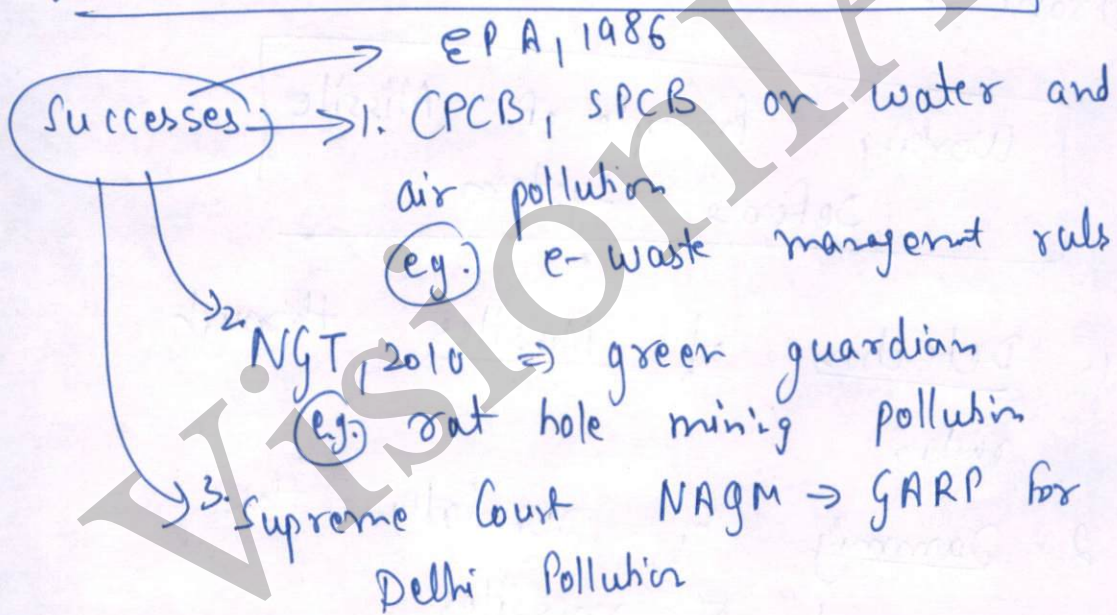 EPA, 1986
Successes
1. CPCB, SPCB on water and
air pollution
eg. e-waste managemnt ruls
2. NGT, 2010 ⇒ green guardian
eg. rat hole minig pollution
3. Supreme Court NAQM → GARP for
Delhi Pollution
VisionIA